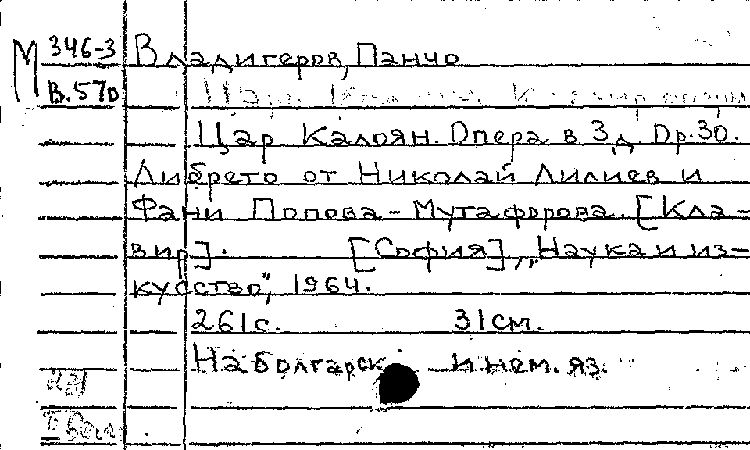 М 346-3 Владигеров, Панчо
В.570
Цар Калоян. Опера в 3 д. Ор.30.
Либрето от Николай Лилиев и
Фани Попова-Мутафорова. [Кла-
вир]. [София], „Наука и из-
куство", 1964.
261с. 31см.
На болгарск. и нем. яз.